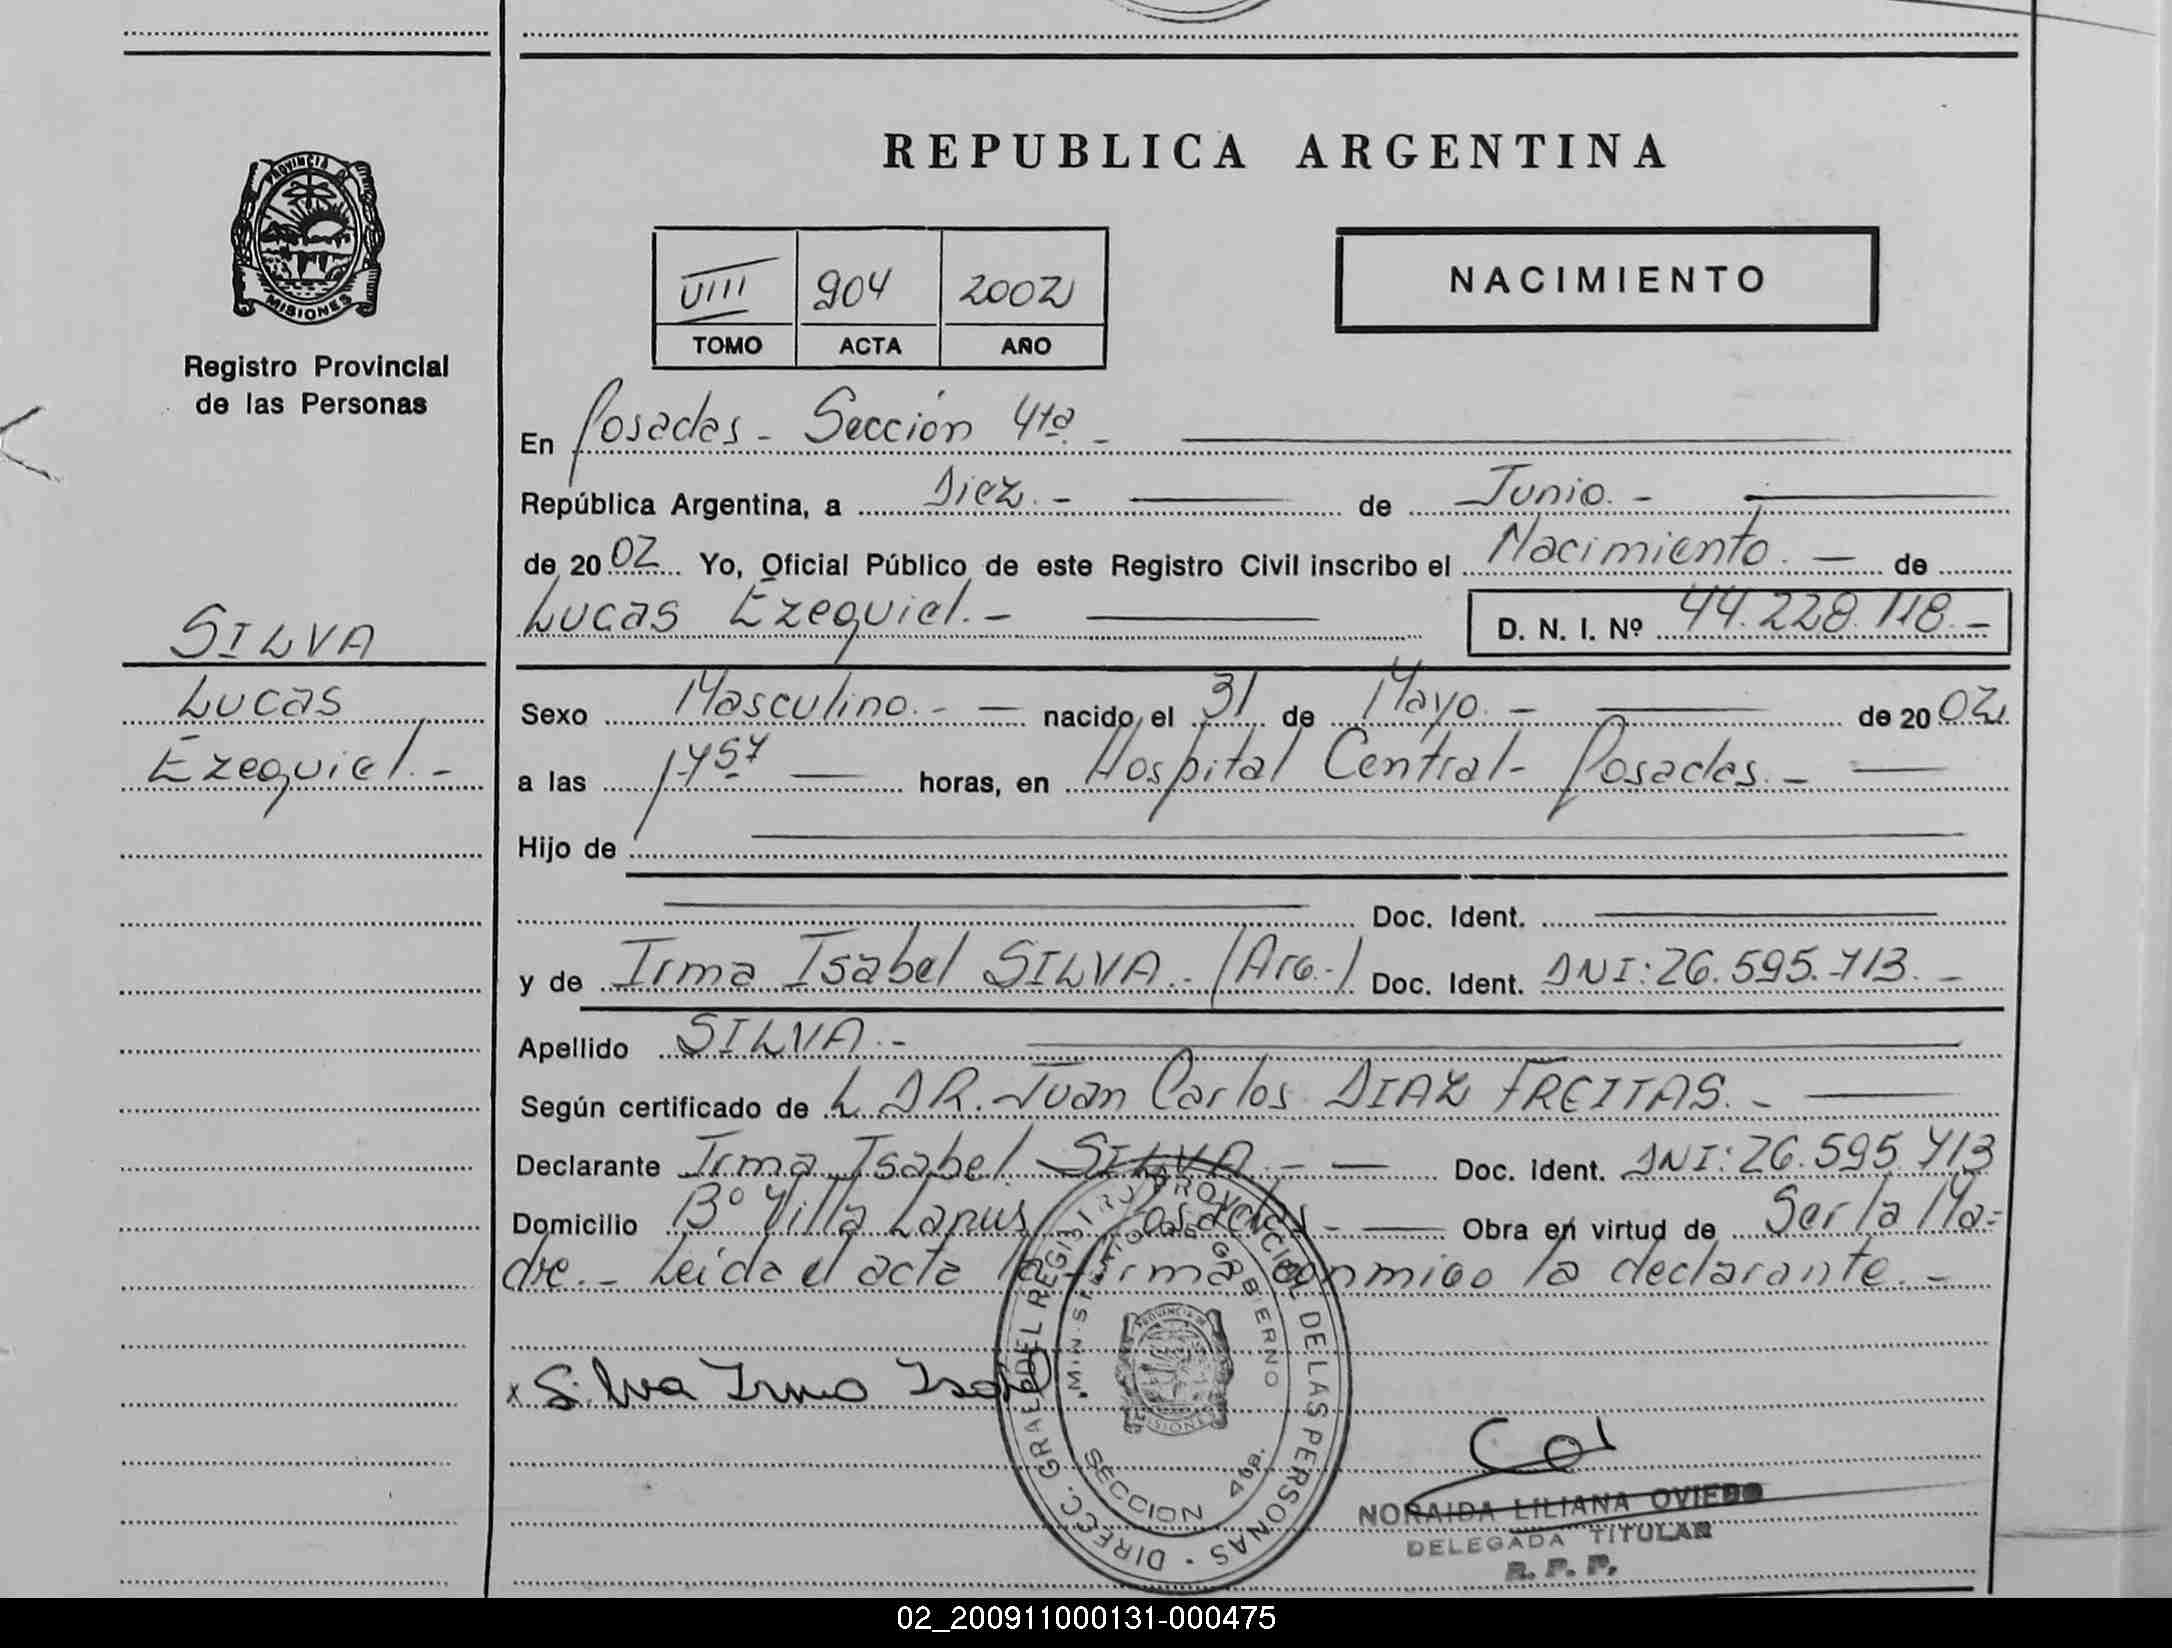 REPUBLICA ARGENTINA
PROVINCIA DE
MISIONES
Registro Provincial
de las Personas
VIII 904 2002
TOMO ACTA AÑO
NACIMIENTO
En Posadas - Sección 4ta -
República Argentina, a Diez.- de Junio.-
de 2002 Yo, Oficial Público de este Registro Civil inscribo el Nacimiento.- de
Lucas Ezequiel.- D. N. I. Nº 44.228.118.-
SILVA
Lucas
Ezequiel.-
Sexo Masculino.- nacido el 31 de Mayo.- de 2002
a las horas, en Hospital Central- Posadas.-
Hijo de
Doc. Ident.
y de Irma Isabel SILVA.- (Arg.-) Doc. Ident. DNI: 26.595.713.-
Apellido SILVA.-
Según certificado de L DR. Juan Carlos DIAZ FREITAS.-
Declarante Irma Isabel SILVA.- Doc. Ident. DNI: 26.595.713
Domicilio Bº Villa Lanus Posadas- Obra en virtud de Ser la Ma=
dre.- Leida el acta la firma conmigo la declarante.-
x Silva Irma Isabel
DIRECC. GRAL. DEL REGISTRO PROVINCIAL DE LAS PERSONAS
MINISTERIO DE GOBIERNO
PROVINCIA DE
MISIONES
SECCION 4ta.
NORAIDA LILIANA OVIEDO
DELEGADA TITULAR
R. P. P.
02_200911000131-000475